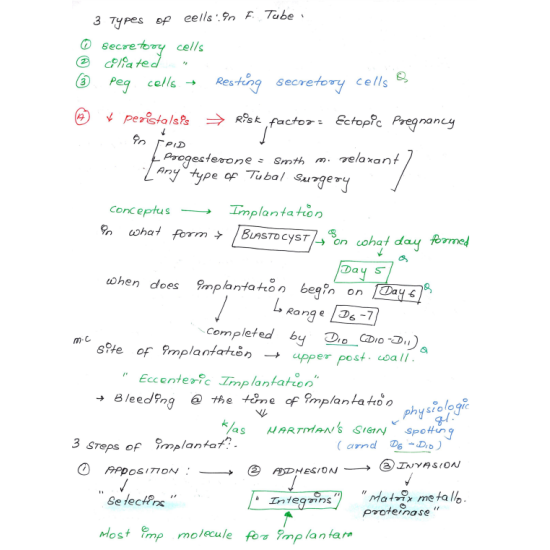 3 Types of cells in F. Tube.
① Secretory cells
② Ciliated "
③ Peg cells → Resting secretory cells Q
Ⓐ ↓ peristalsis ⇒ Risk factor = Ectopic Pregnancy
in PID
Progesterone = Smth m. relaxant
Any type of Tubal Surgery
Conceptus → Implantation
in what form → BLASTOCYST → Q on what day formed
Day 5 Q
when does implantation begin on Day 6 Q
↳ Range D6-7
completed by D10 (D10-D11)
m.c Site of implantation → upper post. wall. Q
" Eccenteric Implantation"
→ Bleeding @ the time of implantation
k/as HARTMAN'S SIGN physiologic
spotting
(arnd D6-D10)
3 steps of implantatn:-
① APPOSITION: → ② ADHESION → ③ INVASION
"Selectins" "Integrins" "Matrix metallo.
proteinase"
Most imp molecule for implantan